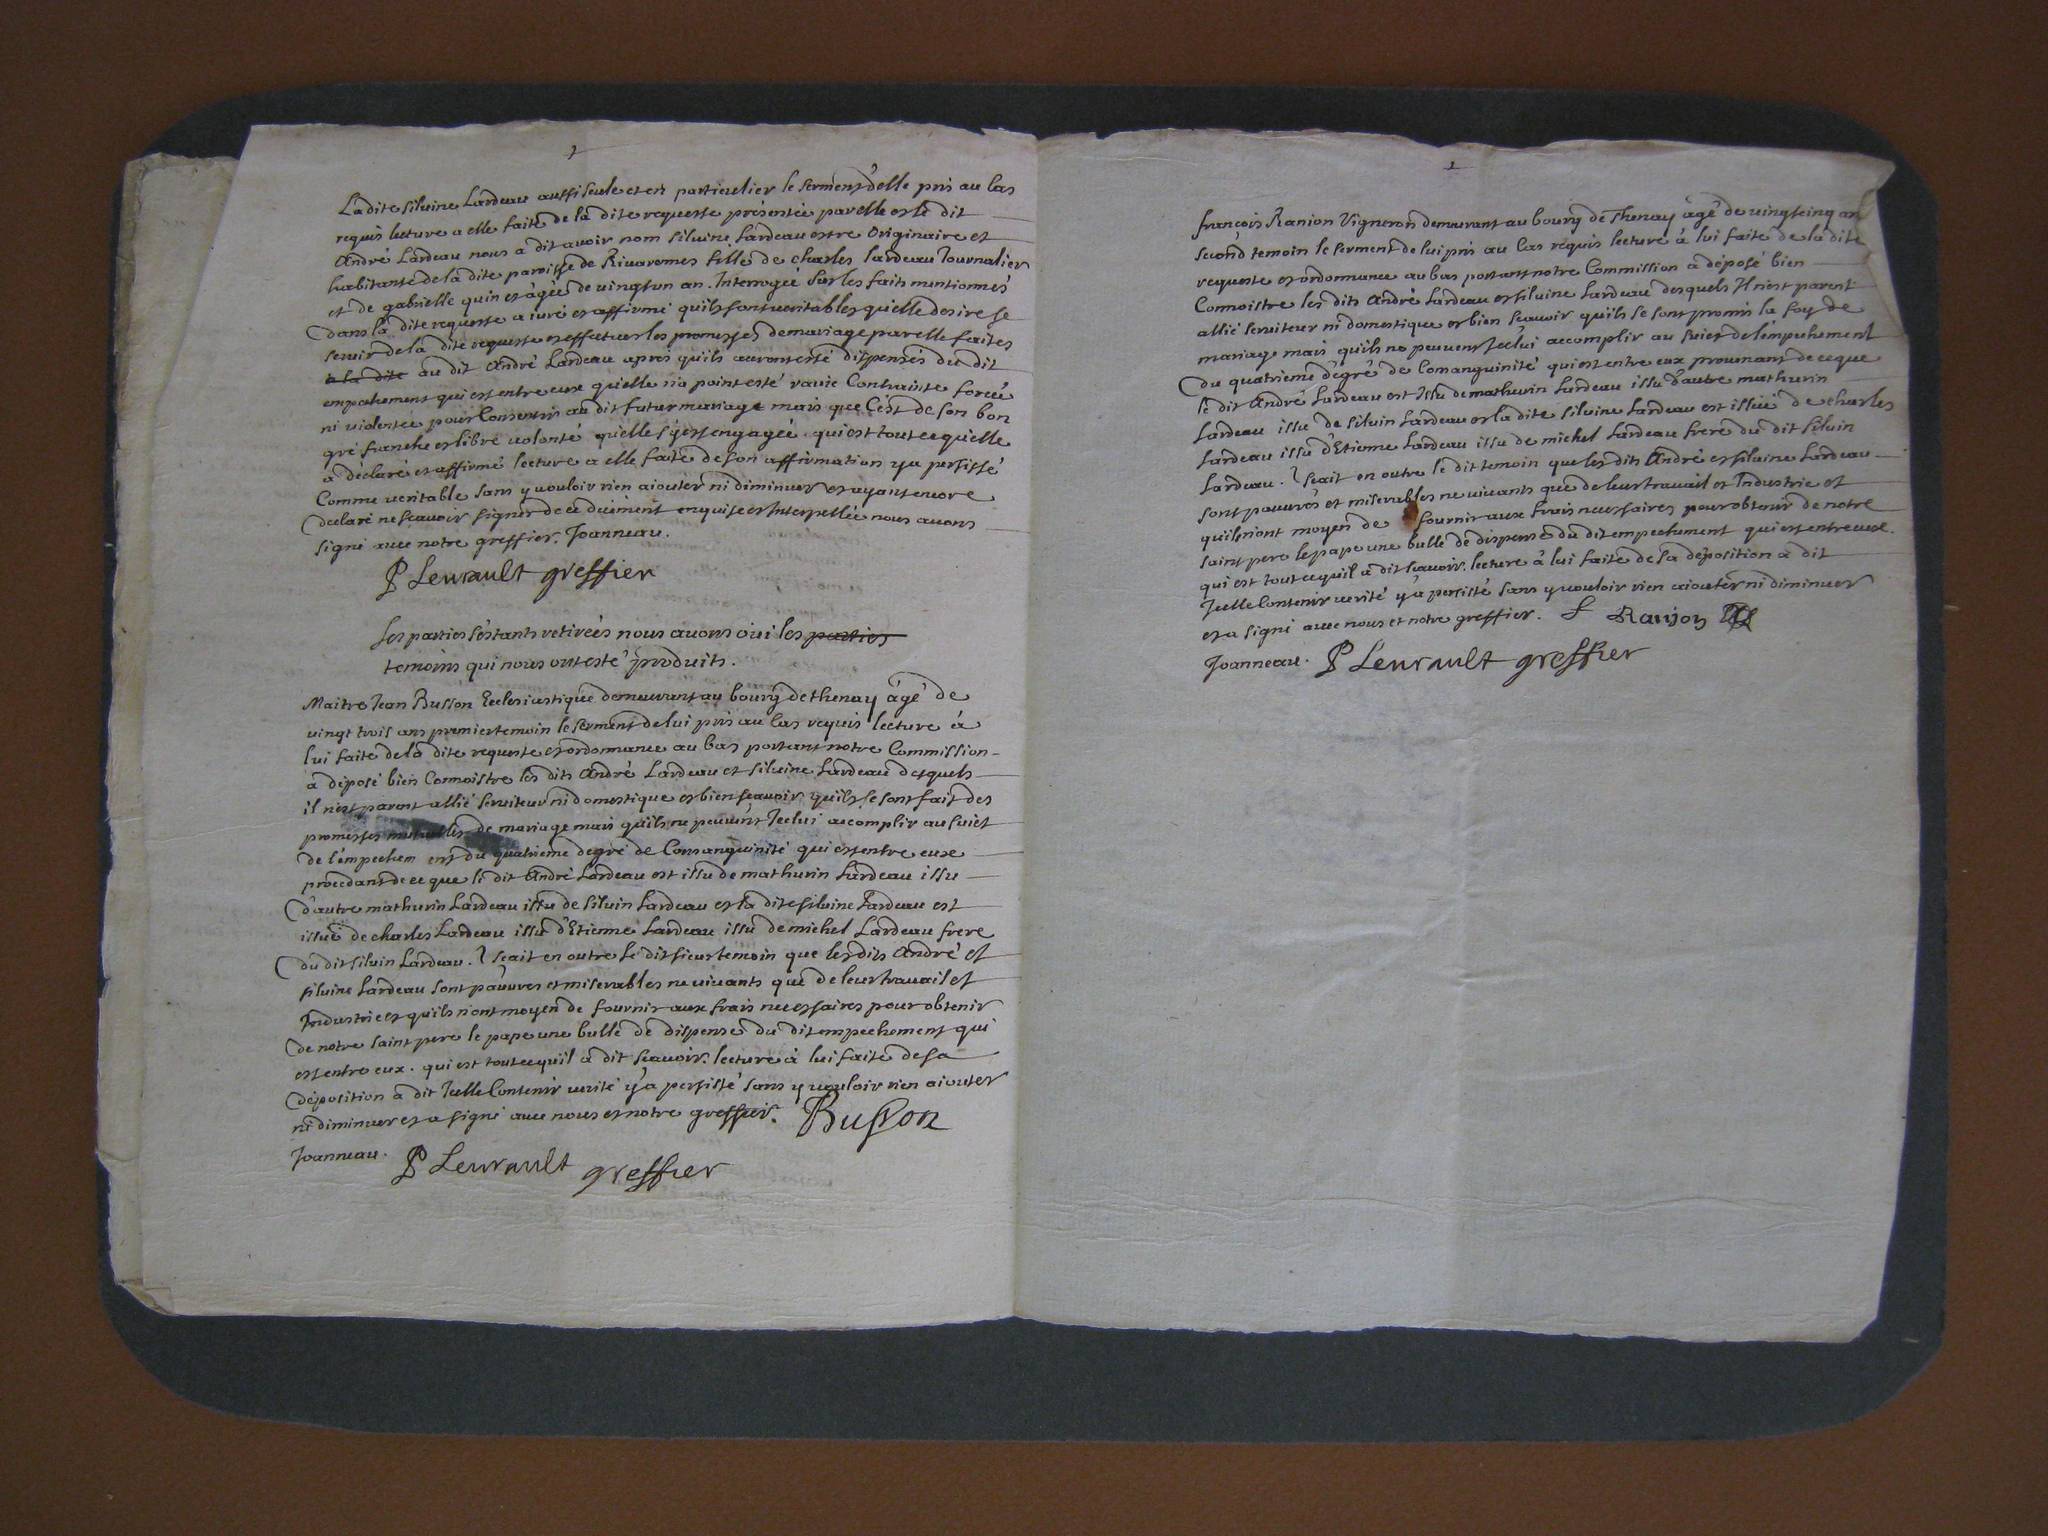 Ladite siluine Lardeau aussi seule et en particulier le serment d'elle pris au cas
requis lecture a elle faite de la dite requeste présentée par elle et le dit
André Lardeau nous a dit avoir nom siluine Lardeau estre Originaire et
habitante de la dite paroisse de Riuarennes fille de charles lardeau Journalier
et de gabrielle quin et âgée de uingt un an. Interrogée sur les faits mentionnés
dans la dite requeste a iuré et affirmé quils sont ueritables qu'elle desire se
seruir de la dite requeste et effetuer les promesses de mariage par elle faites
a la dite au dit André Lardeau après quils auront esté dispensés du dit
empechement qui est entre eux qu'elle n'a point esté rauie Contrainte forcée
ni uiolentée pour Consentir au dit futur mariage mais que C'est de son bon
gré franche et libre uolonté qu'elle s'y est engagée. qui est tout ce qu'elle
a déclaré et affirmé lecture a elle faite de son affirmation y a persisté
Comme ueritable sans y uouloir rien aiouter ni diminuer et ayant encore
declaré ne scauoir signer de ce deüment enquise et Interpellée nous auons
signé auec notre greffier. Joanneau.
P Leurault greffier
Les parties s'estants retirées nous auons oüi les parties
temoins qui nous ont esté produits.
Maitre Jean Busson Ecclesiastique demeurant au bourg de thenay âgé de
uingt trois ans premier temoin le serment de lui pris au cas requis lecture à
lui faite de la dite requeste et ordonnance au bas portant notre Commission
a déposé bien Connoistre les dits André Lardeau et siluine Lardeau desquels
il n'est parent allié seruiteur ni domestique et bien scauoir quils se sont fait des
promesses mutuelles de mariage mais quils ne peuuent Icelui accomplir au suiet
de l'empechement du quatrieme degré de Consanguinité qui est entre eux
procedant de ce que le dit André Lardeau est issu de mathurin Lardeau issu
d'autre mathurin Lardeau issu de siluin Lardeau et la dite siluine Lardeau est
issuë de charles Lardeau issu d'Etienne Lardeau issu de michel Lardeau frere
du dit siluin Lardeau. Scait en outre le dit sieur temoin que les dits André et
siluine Lardeau sont pauures et miserables ne uiuants que de leur trauail et
Industrie et quils n'ont moyen de fournir aux frais necessaires pour obtenir
de notre saint pere le pape une bulle de dispense du dit empechement qui
est entre eux. qui est tout ce qu'il a dit scauoir. lecture à lui faite de sa
déposition a dit Icelle Contenir uerité y a persisté sans y uouloir rien aiouter
ni diminuer et a signé auec nous et notre greffier. Busson
Joanneau. P Leurault greffier
françois Ranion Vigneron demeurant au bourg de Thenay âgé de uingt cinq an
second temoin le serment de lui pris au cas requis lecture à lui faite de la dite
requeste et ordonnance au bas portant notre Commission a déposé bien
Connoistre les dits André Lardeau et siluine Lardeau desquels Il n'est parent
allié seruiteur ni domestique et bien scauoir quils se sont promis la foy de
mariage mais quils ne peuuent Icelui accomplir au suiet de l'empechement
du quatrieme degré de Consanguinité qui est entre eux prouenant de ce que
le dit André Lardeau est Issu de mathurin Lardeau issu d'autre mathurin
Lardeau issu de siluin Lardeau et la dite siluine Lardeau est issuë de charles
Lardeau issu d'Etienne Lardeau issu de michel Lardeau frere du dit siluin
Lardeau. Scait en outre le dit temoin que les dits André et siluine Lardeau
sont pauures et miserables ne uiuants que de leur trauail et Industrie et
quils n'ont moyen de fournir aux frais necessaires pour obtenir de notre
saint pere le pape une bulle de dispense du dit empechement qui est entre eux.
qui est tout ce quil a dit scauoir. lecture à lui faite de sa déposition a dit
Icelle Contenir uerité y a persisté sans y uouloir rien aiouter ni diminuer
et a signé auec nous et notre greffier. f Ranion
Joanneau. P Leurault greffier